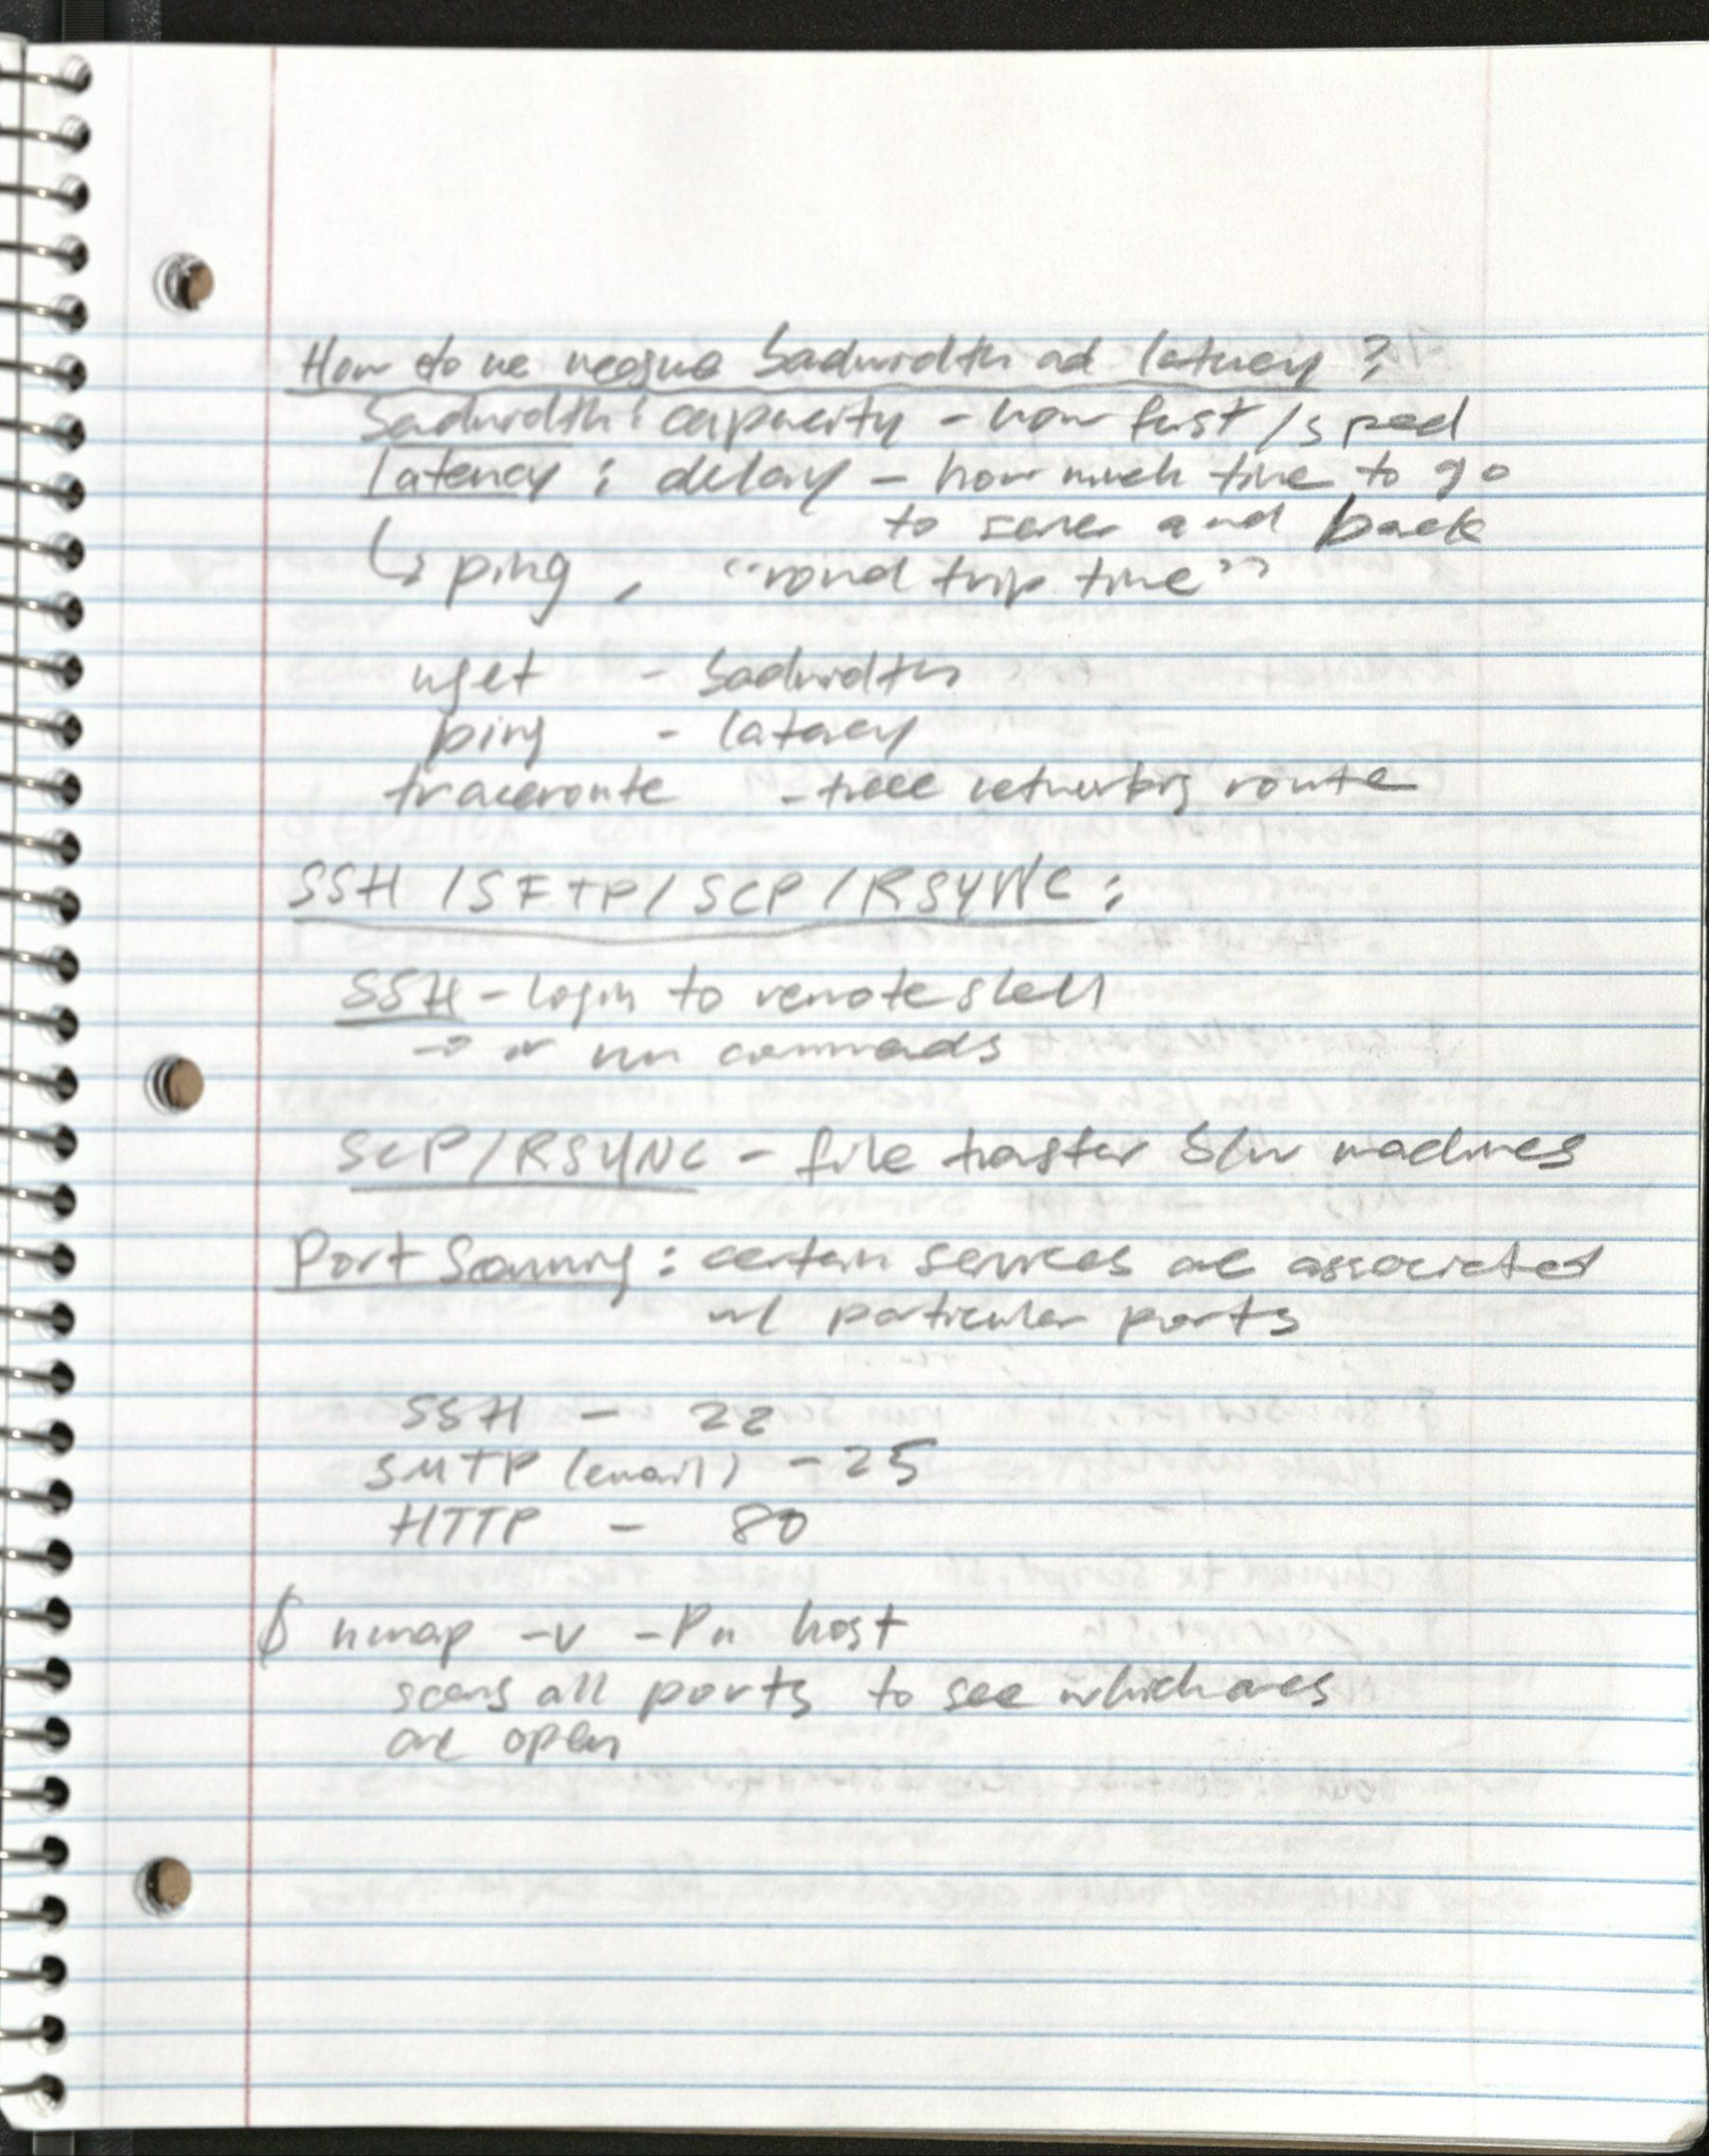 How do we measure bandwidth and latency?
bandwidth: capacity - how fast / speed
latency: delay - how much time to go
to server and back
↳ ping, "round trip time"
wget - bandwidth
ping - latency
traceroute - trace networking route
SSH / SFTP / SCP / RSYNC:
SSH - login to remote shell
→ or run commands
SCP/RSYNC - file transfer b/w machines
Port Scanning: certain services are associated
w/ particular ports
SSH - 22
SMTP (email) - 25
HTTP - 80
$ nmap -v -Pn host
scans all ports to see which ones
are open